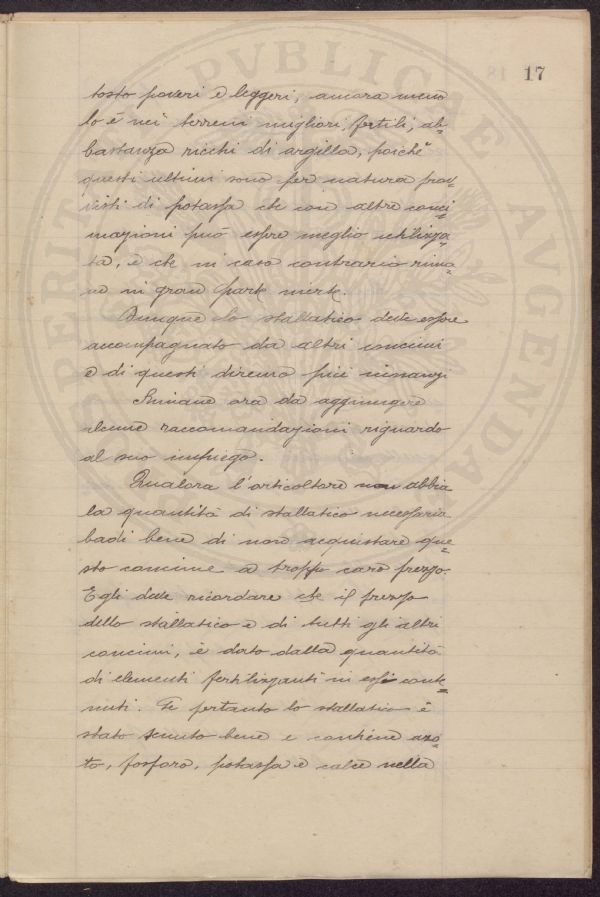 17
tosto poveri e leggeri; ancora meno
lo è nei terreni migliori, fertili, ab-
bastanza ricchi di argilla, poichè
questi ultimi sono per natura prov-
visti di potassa che con altre conci-
mazioni può essere meglio utilizza-
ta, e che in caso contrario rima-
ne in gran parte inerte.
Dunque lo stallatico deve essere
accompagnato da altri concimi
e di questi diremo più innanzi
Rimane ora da aggiungere
alcune raccomandazioni riguardo
al suo impiego.
Qualora l'orticoltore non abbia
la quantità di stallatico necessaria
badi bene di non acquistare que-
sto concime a troppo caro prezzo.
Egli deve ricordare che il prezzo
dello stallatico e di tutti gli altri
concimi, è dato dalla quantità
di elementi fertilizzanti in essi conte-
nuti. Se pertanto lo stallatico è
stato tenuto bene e contiene azo-
to, fosforo, potassa e calce nella